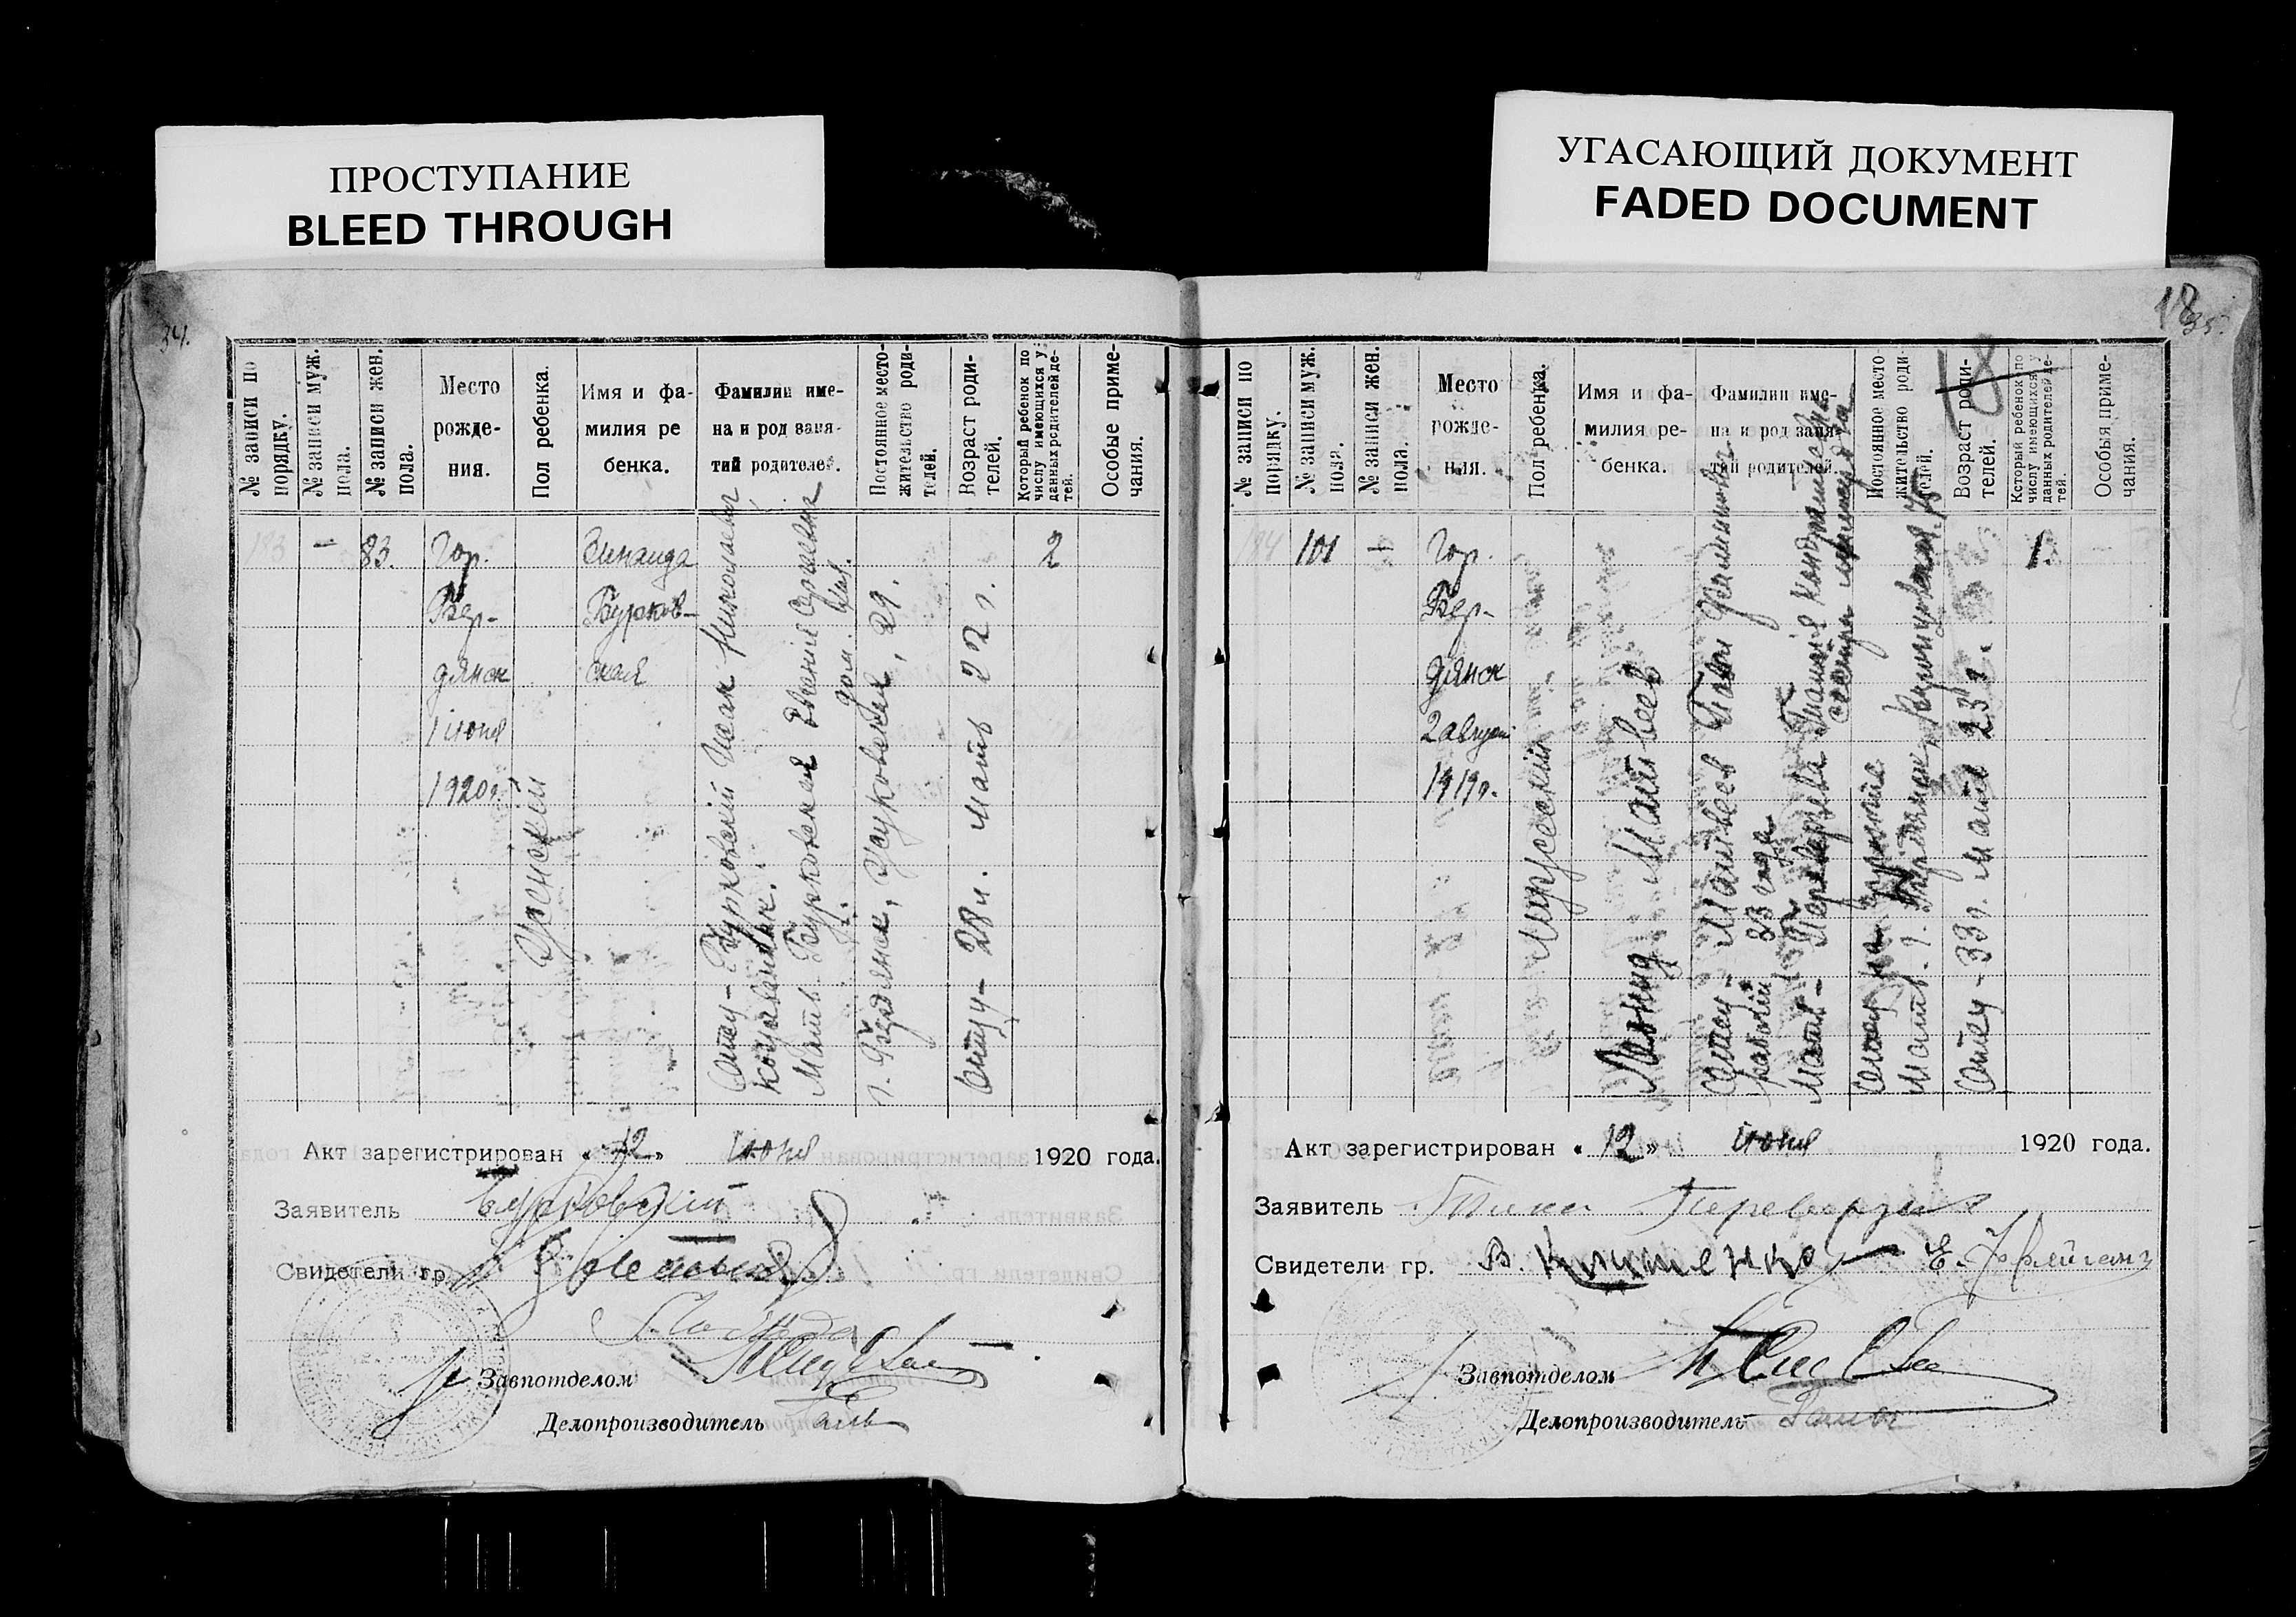 ПРОСТУПАНИЕ
BLEED THROUGH
УГАСАЮЩИЙ ДОКУМЕНТ
FADED DOCUMENT
34.
№ записи по порядку.
№ записи муж. пола.
№ записи жен. пола.
Место рожде-ния.
Пол ребенка.
Имя и фа-милия ре бенка.
Фамилии име-на и род заня-тий родителей.
Постоянное место-жительство роди-телей.
Возраст роди-телей.
Который ребенок по числу имеющихся у данных родителей де-тей.
Особые приме-чания.
183
—
83.
Гор.
Бер-
дянск
1 июня
1920 г.
Женский
Зинаида
Бурков-
ская
Отец – Бурковский Исак Николаевич
Мать – Бурковская Евгения Сергеевна
г. Бердянск,
29.
Отцу – 28 л. мать 22 г.
2
Акт зарегистрирован « 12 » июня 1920 года.
Заявитель Бурковский
Свидетели гр.
Завпотделом
Делопроизводитель
18
35.
18
№ записи по порядку.
№ записи муж. пола.
№ записи жен. пола.
Место рожде-ния.
Пол ребенка.
Имя и фа-милия ре-бенка.
Фамилии име-на и род заня-тий родителей.
Постоянное место жительство роди-телей.
Возраст роди-телей.
Который ребенок по числу имеющихся у данных родителей де-тей.
Особыя приме-чания.
184
101
—
Гор.
Бер-
дянск
2 август
1919 г.
Мужеский
Леонид Матвеев
Отец – Матвеев Павел Филиппович
рабочий 33 года
Мать – Переверзева Таисия Кондратьевна
сестра милосердия
Мать. г. Бердянск,
Отцу – 33 г. Мать 23 г.
1.
Акт зарегистрирован « 12 » июня 1920 года.
Заявитель Переверзева
Свидетели гр. В.
Е.
Завпотделом
Делопроизводитель